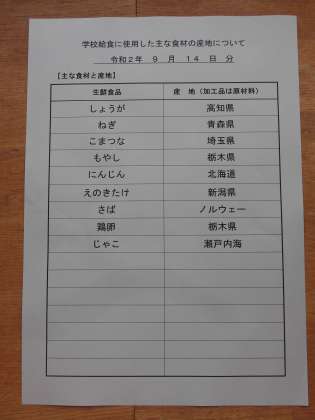 学校給食に使用した主な食材の産地について
令和２年　９　月　１４　日　分
【主な食材と産地】
生鮮食品　産　地（加工品は原材料）
しょうが　高知県
ねぎ　青森県
こまつな　埼玉県
もやし　栃木県
にんじん　北海道
えのきたけ　新潟県
さば　ノルウェー
鶏卵　栃木県
じゃこ　瀬戸内海